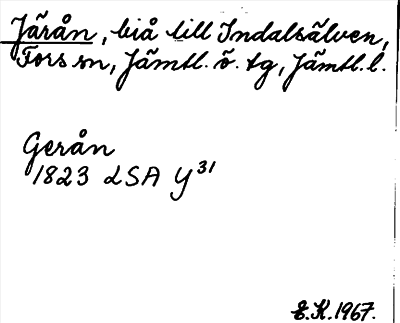 Järån, biå till Indalsälven,
Fors sn, Jämtl. ö. tg, Jämtl. l.
Gerån
1823 LSA Y³¹
E.K. 1967.